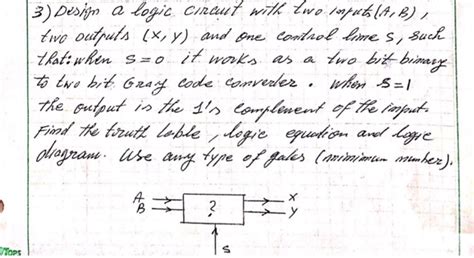 3) Design a logic circuit with two inputs (A, B),
two outputs (X, Y) and one control line S, such
that: when S=0 it works as a two bit binary
to two bit Gray code converter. When S=1
the output is the 1's complement of the input.
Find the truth table, logic equation and logic
diagram. Use any type of gates (minimum number).
A X
B ? Y
S
TOPS